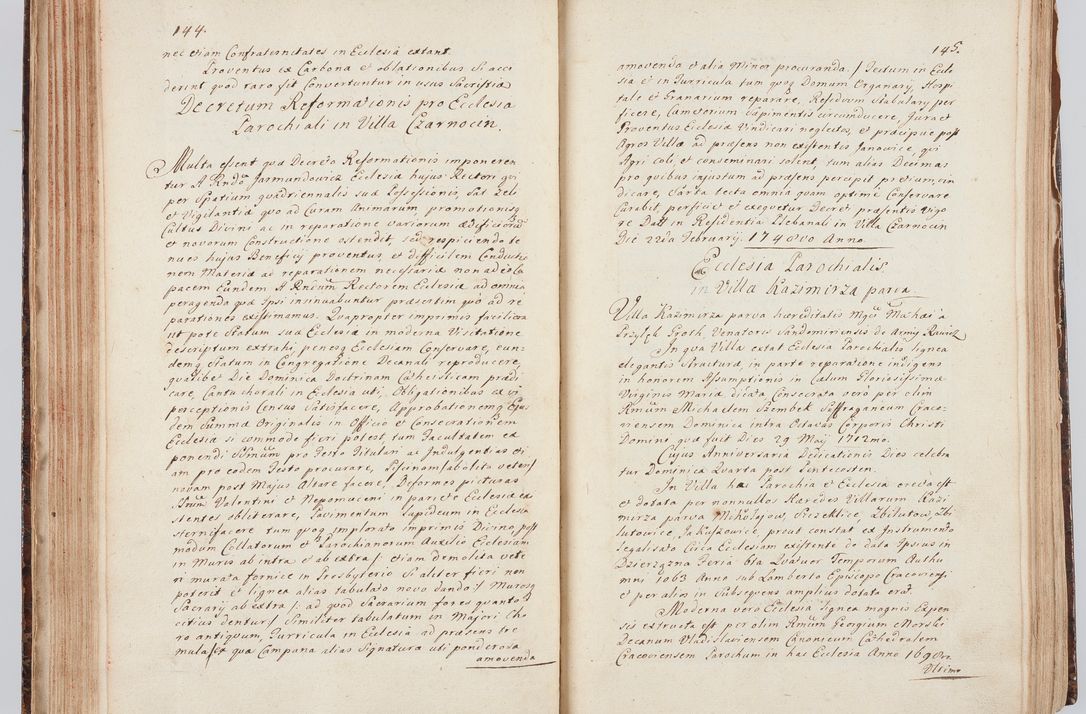 144.
nec etiam Confraternitates in Ecclesia extant
Proventus ex Carbona et oblationibus Si acci
derint quod raro fit Convertuntur in usus Sacristia
Decretum Reformationis pro Ecclesia
Parochiali in Villa Czarnocin.
Multa essent qua Decreto Reformationis imponeren
tur A Rndo Jarmundowicz Ecclesia hujus Rectori qui
per Spatium quadriennalis sua Possessionis, Sat Zeli
et Vigilantia quo ad Curam Animarum promotionisq
Cultus Divini ac in reparatione variorum Ædificiorum
et novorum Constructione ostendit, sed respiciendo te
nues hujus Beneficy proventus, et difficilem Conductio
nem Materia ad reparationem necessaria non adeo Ca
pacem Eundem A Rndum Rectorem Ecclesia ad omnia
peragenda qua Ipsi insinuabuntur prasertim quo ad re
parationes existimamus. Quapropter imprimis faciliora
ut pote Statum sua Ecclesia in moderna Visitatione
descriptum extrahi, penesq Ecclesiam Conservare, eun-
demq Statum in Congregatione Decanali reproducere,
qualibet Die Dominica Doctrinam Catheisticam pradi
care, Cantu chorali in Eclesia uti, Obligationibus ex
perceptionis Census Satisfacere, Approbationemq Ejus
dem Summa Originalis in Officio et Consecrationem
Ecclesia si commode fieri potest tum Facultatem ex
ponendi Ssmum pro Festo Titulari ac Indulgentias et
am pro eodem Festo procurare, Piscinam abolita veteri
novam post Majus Altare facere, Deformes picturas
Valentini et Nepomuceni in pariete Ecclesia exi
stentes obliterare, Pavimentum Lapideum in Ecclesia
sternifacere tum quoq implorato imprimis Divino, post
modum Collatorum et Parochianorum Auxilio Ecclesiam
in Muris ab intra et ab extra / etiam demolita vete
ri murata fornice in Presbyterio Si aliter fieri non
poterit et lignea alias tabulato novo dando / Murosq
Sacrary ab extra / ad quod Sacrarium fores quanto
citius dentur / Similiter tabulatum in Majori Cho
ro antiquum, Turricula in Eclesia ad prasens tre
mula et qua Campana alias Signatura uti ponderosa
amovenda
145.
amovenda et alia Minor procuranda / Tectum in Eccle
sia et in Turricula tum quoq Domum Organary, Hospi
tale et Granarium reparare, Residuum Stabulary per
ficere, Cæmeterium Sapimentis circumducere, Jura et
Proventus Ecclesia Vindicari neglectos, et pracipue post
Agros Villa ad prasens non existentis Janowice, qui
Agri coli, et conseminari solent, tum alias Decimas
pro quibus injustum ad prasens percipit pretium, vin
dicare, Sarta tecta omnia quam optime Conservare
Curabit perficiet et exequetur Decreti prasentis vigo
re Datt in Residentia Plebanali in Villa Czarnocin
Die 22da February. 1748vo Anno.
Ecclesia Parochialis
in Villa Kazimirza parva.
Villa Kazimirza parva hæreditatis Mgci Mathai a
Przyłęk Groth, Venatoris Sandomiriensis de Armis Rawicz
In qua Villa extat Ecclesia Parochialis lignea
elegantis Structura, in parte reparatione indigens
in honorem Assumptionis in Cælum Gloriosissima
Virginis Maria dicata Consecrata vero per olim
Rmum Michaelem Szembek Suffraganeum Craco-
viensem Dominica intra Octavas Corporis Christi
Domino qua fuit Dies 29 Maij 1712mo.
Cujus Anniversaria Dedicationis Dies celebra
tur Dominica Quarta post Pentecosten.
In Villa hac Parochia et Ecclesia erecta est
et dotata per nonnullos Hæredes Villarum Kazi
mirza parva Mikołajow, Pieczełice, Zbiłutow, Zbi
łutowice, Jakuszowice, prout constat ex Instrumento
legalisato Circa Ecclesiam existente de data Ipsius in
Dzierzązna Feria 6ta Quatuor Temporum Authu
mni 1063 Anno sub Lamberto Episcopo Cracoviensi
et per alios in Subsequens amplius dotata erat.
Moderna vero Ecclesia lignea magnis Expen
sis extructa est per olim Rmum Georgium Morski
Decanum Vladislaviensem Canonicum Cathedralem
Cracoviensem Parochum in hac Ecclesia Anno 169
Ultimo